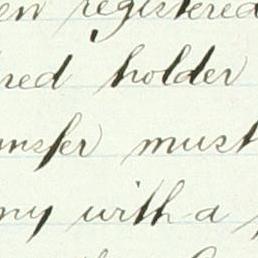 en registered
red holder
nsfer must
ny with a